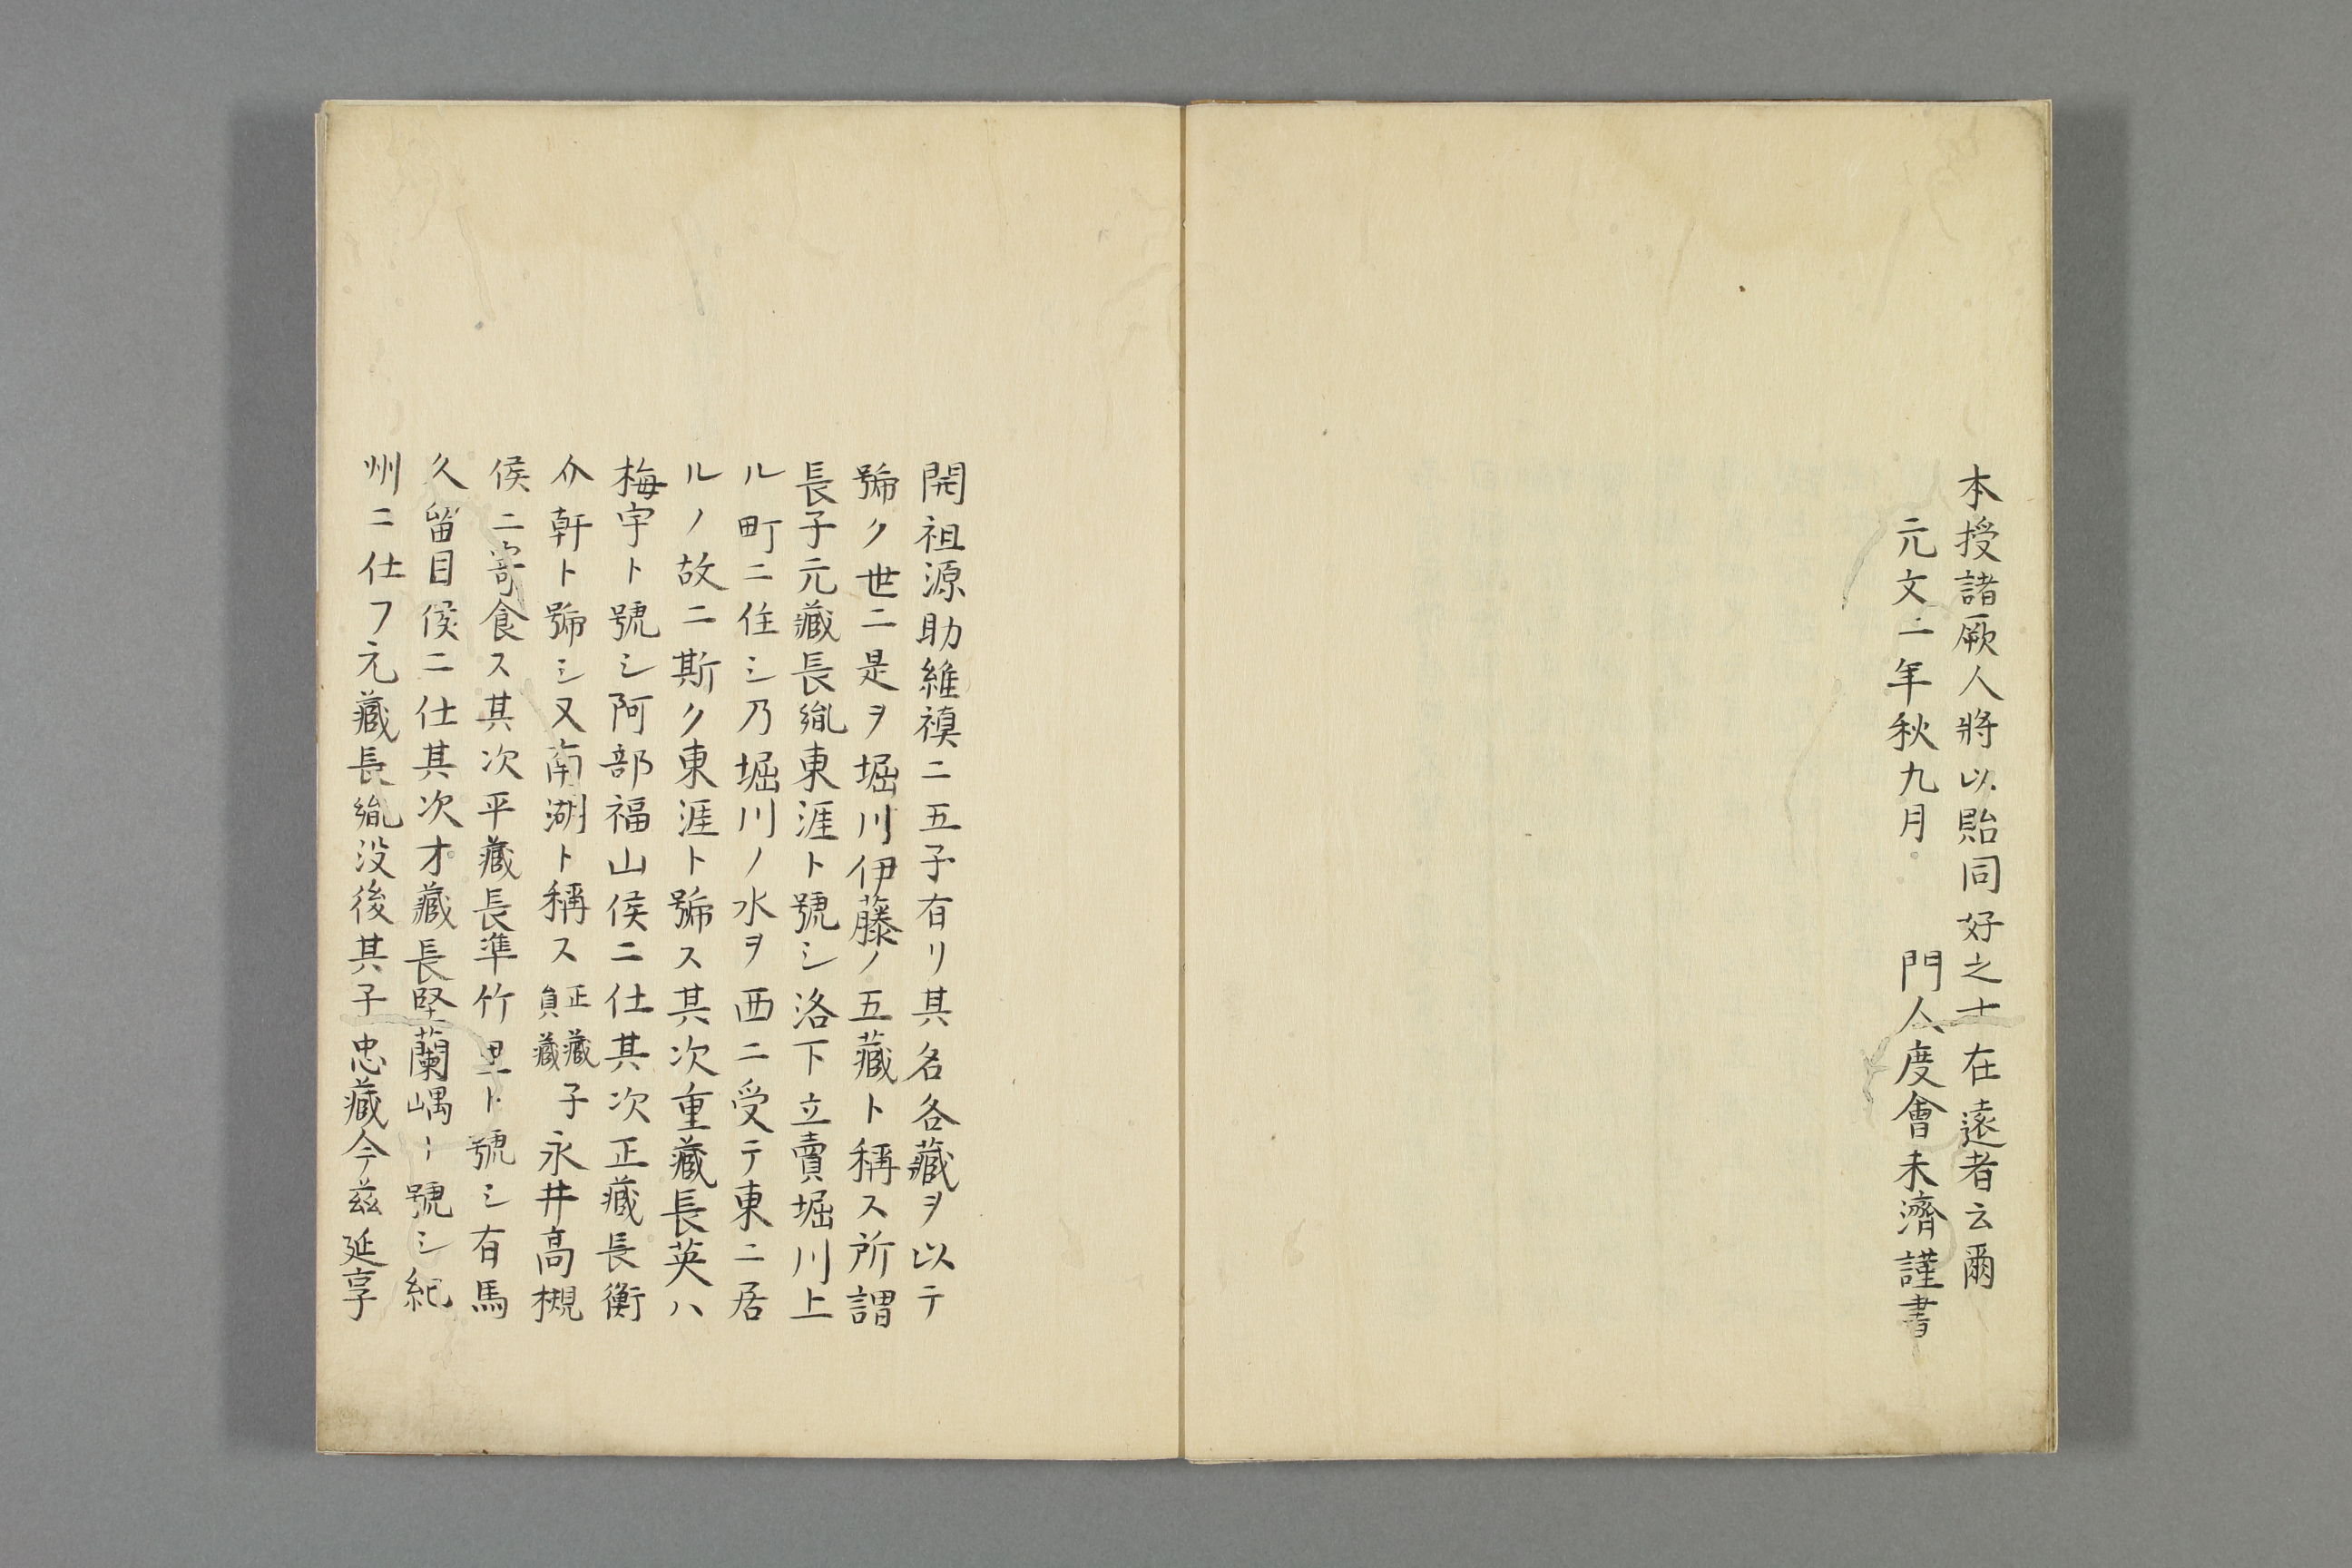 本授諸厥人將以貽同好之士在遠者云爾
元文二年秋九月　門人度會未濟謹書
開祖源助維禎ニ五子有リ其名各藏ヲ以テ
號ク世ニ是ヲ堀川伊藤ノ五藏ト稱ス所謂
長子元藏長胤東涯ト號シ洛下立賣堀川上
ル町ニ住シ乃堀川ノ水ヲ西ニ受テ東ニ居
ルノ故ニ斯ク東涯ト號ス其次重藏長英ハ
梅宇ト號シ阿部福山侯ニ仕其次正藏長衡
介軒ト號シ又南湖ト稱ス正藏負藏子永井高槻
侯ニ寄食ス其次平藏長準竹里ト號シ有馬
久留目侯ニ仕其次才藏長堅蘭嵎ト號シ紀
州ニ仕フ元藏長胤没後其子忠藏今茲延享